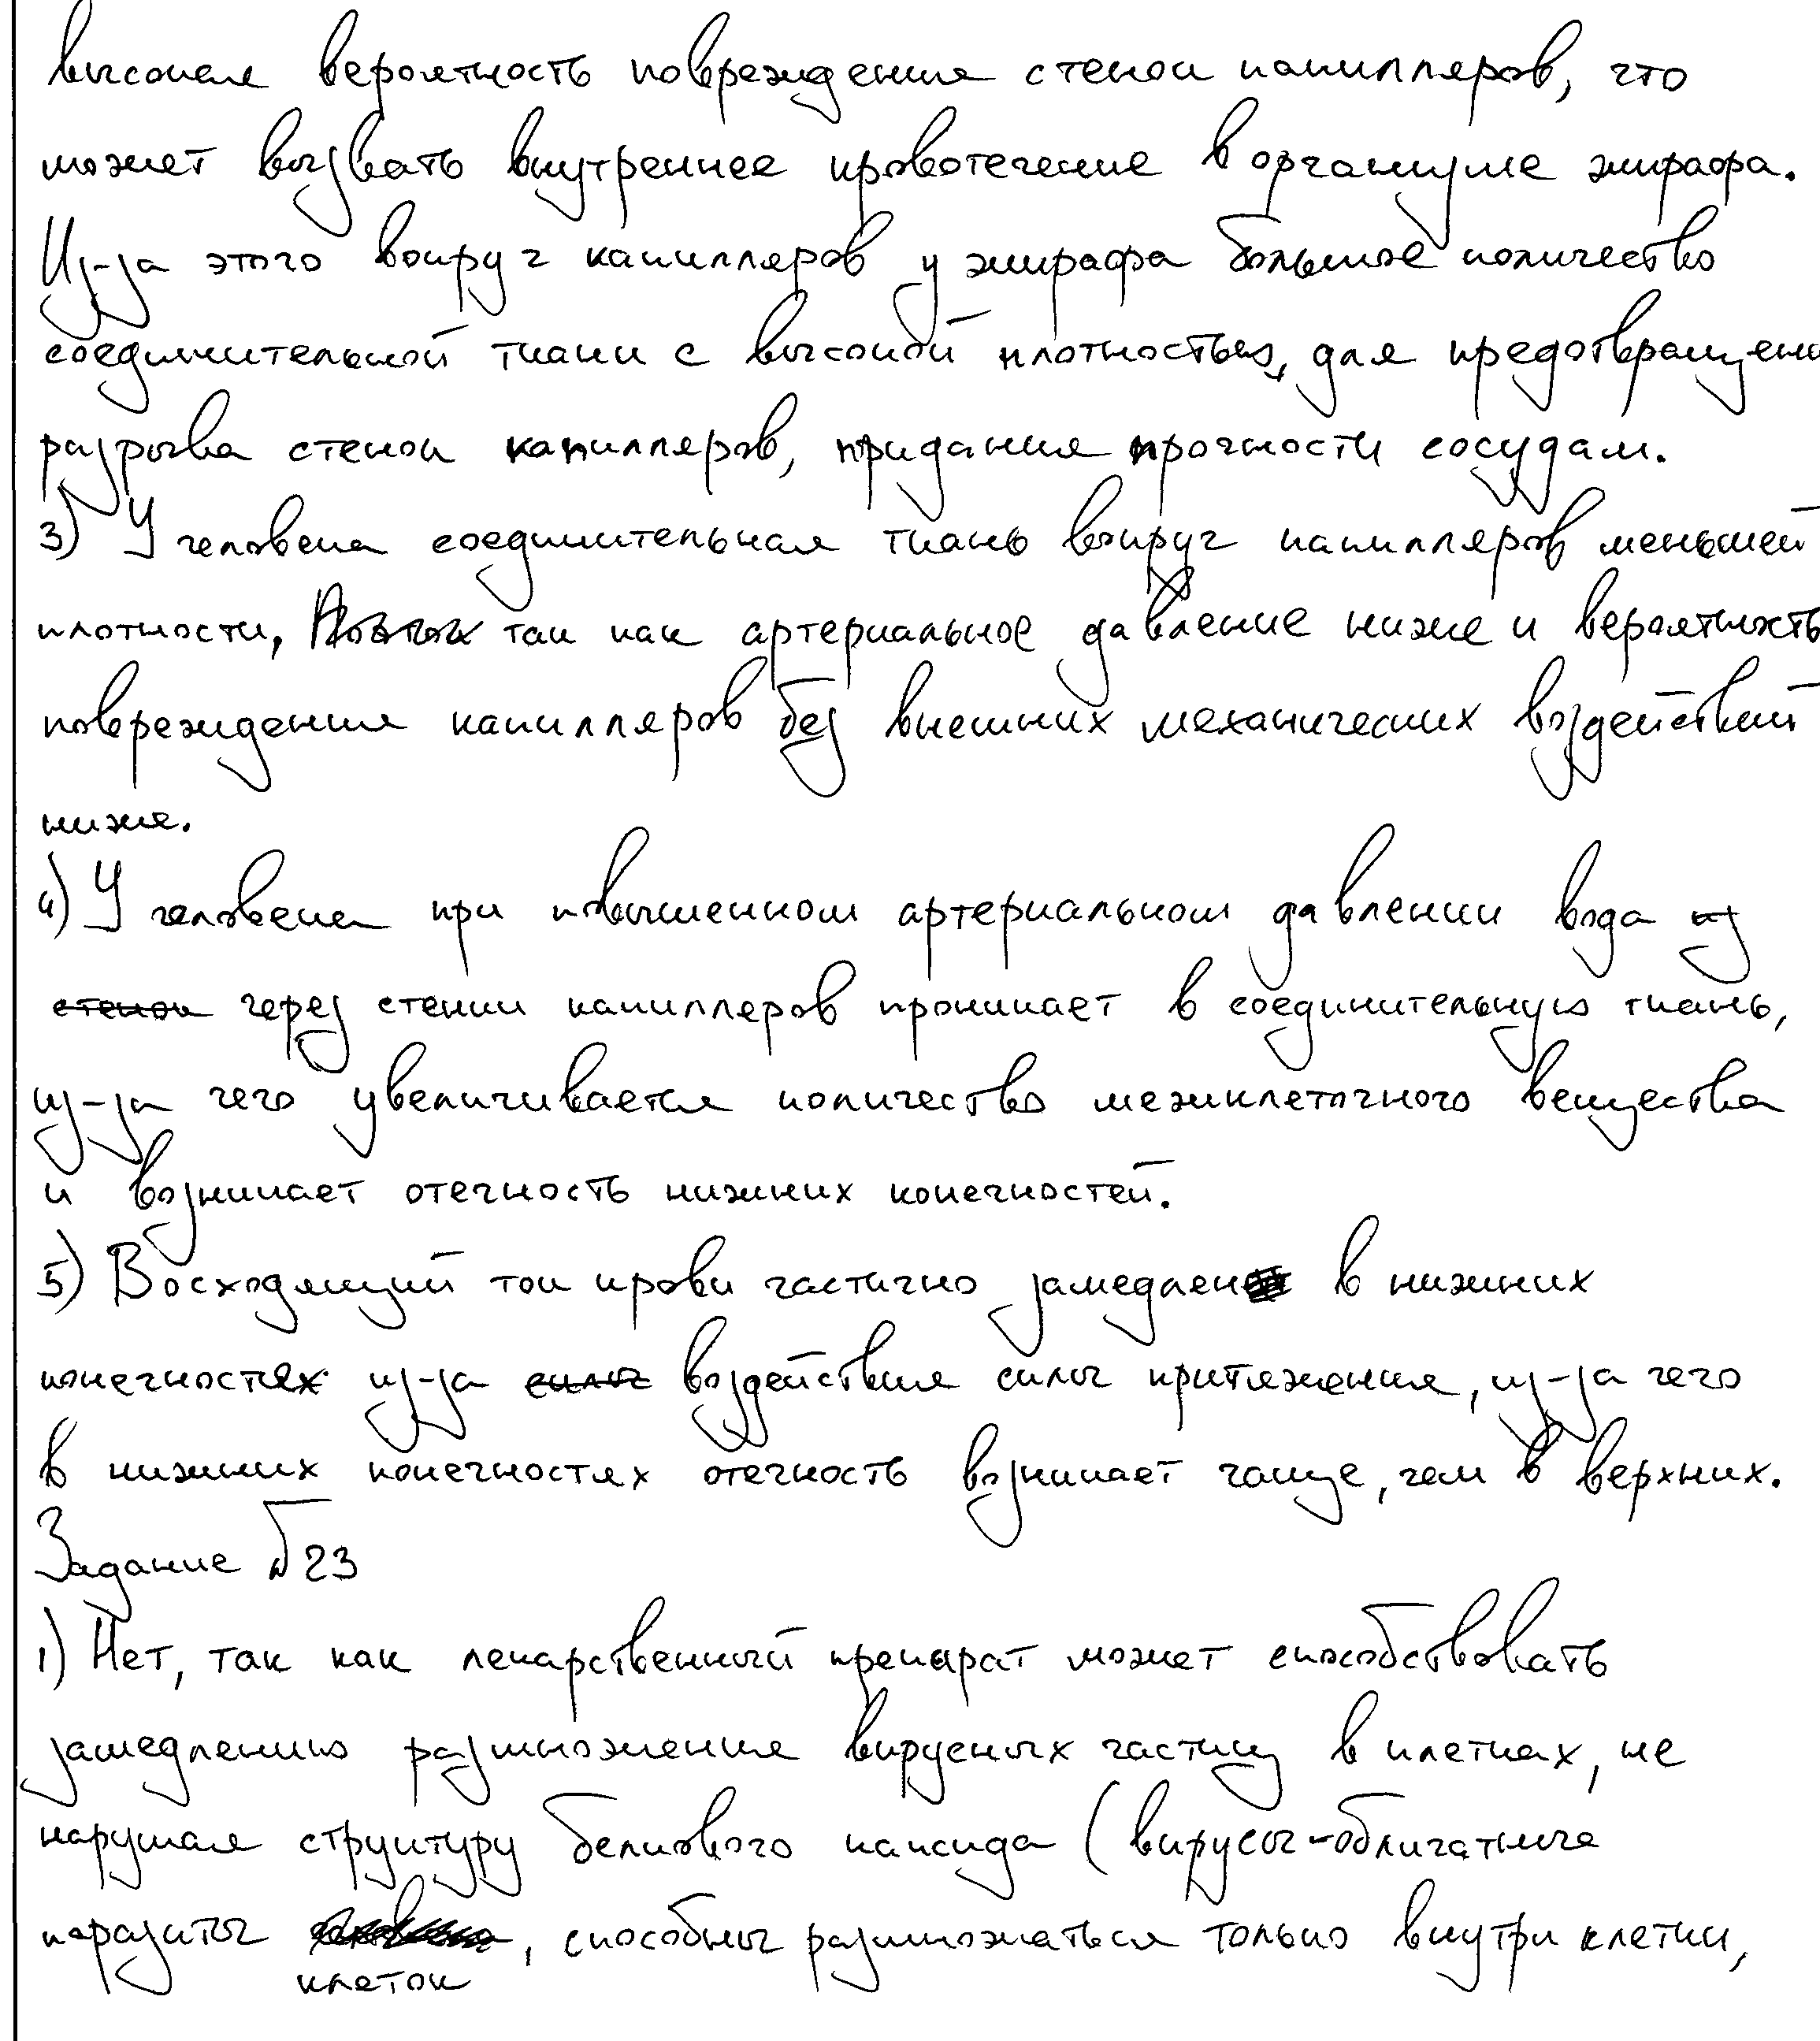 высокая вероятность повреждения стенок капилляров, что
может вызвать внутреннее кровотечение в организме жирафа.
Из-за этого вокруг капилляров у жирафа большое количество
соединительной ткани с высокой плотностью, для предотвращени
разрыва стенок капилляров, придания прочности сосудам.
3) У человека соединительная ткань вокруг капилляров меньшей
плотности, так как артериальное давление ниже и вероятность
повреждения капилляров без внешних механических воздействий
ниже.
4) У человека при повышенном артериальном давлении вода из
стенок через стенки капилляров проникает в соединительную ткань,
из-за чего увеличивается количество межклеточного вещества
и возникает отечность нижних конечностей.
5) Восходящий ток крови частично замедлен в нижних
конечностях из-за силы воздействия силы притяжения, из-за чего
в нижних конечностях отечность возникает чаще, чем в верхних.
Задание №23
1) Нет, так как лекарственный препарат может способствовать
замедлению размножения вирусных частиц в клетках, не
нарушая структуру белкового капсида (вирусы-облигатные
паразиты , способны размножаться только внутри клетки,
клеток